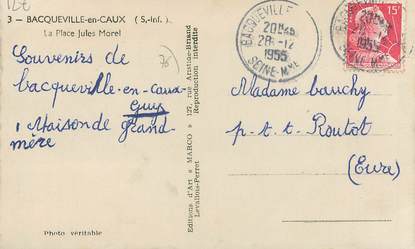 3 - BACQUEVILLE-en-CAUX ( S.-Inf. )
La Place Jules Morel
Souvenirs de
bacqueville-en-caux
Guy
1 Maison de grand-
mère
Photo véritable
Editions d'Art « MARCO » 127, rue Aristide-Briand
Levallois-Perret Reproduction interdite
BACQUEVILLE
20H45
28-12
1955
SEINE-Mme
15F
1955
Madame bauchy
p.t.t. Routot
(Eure)